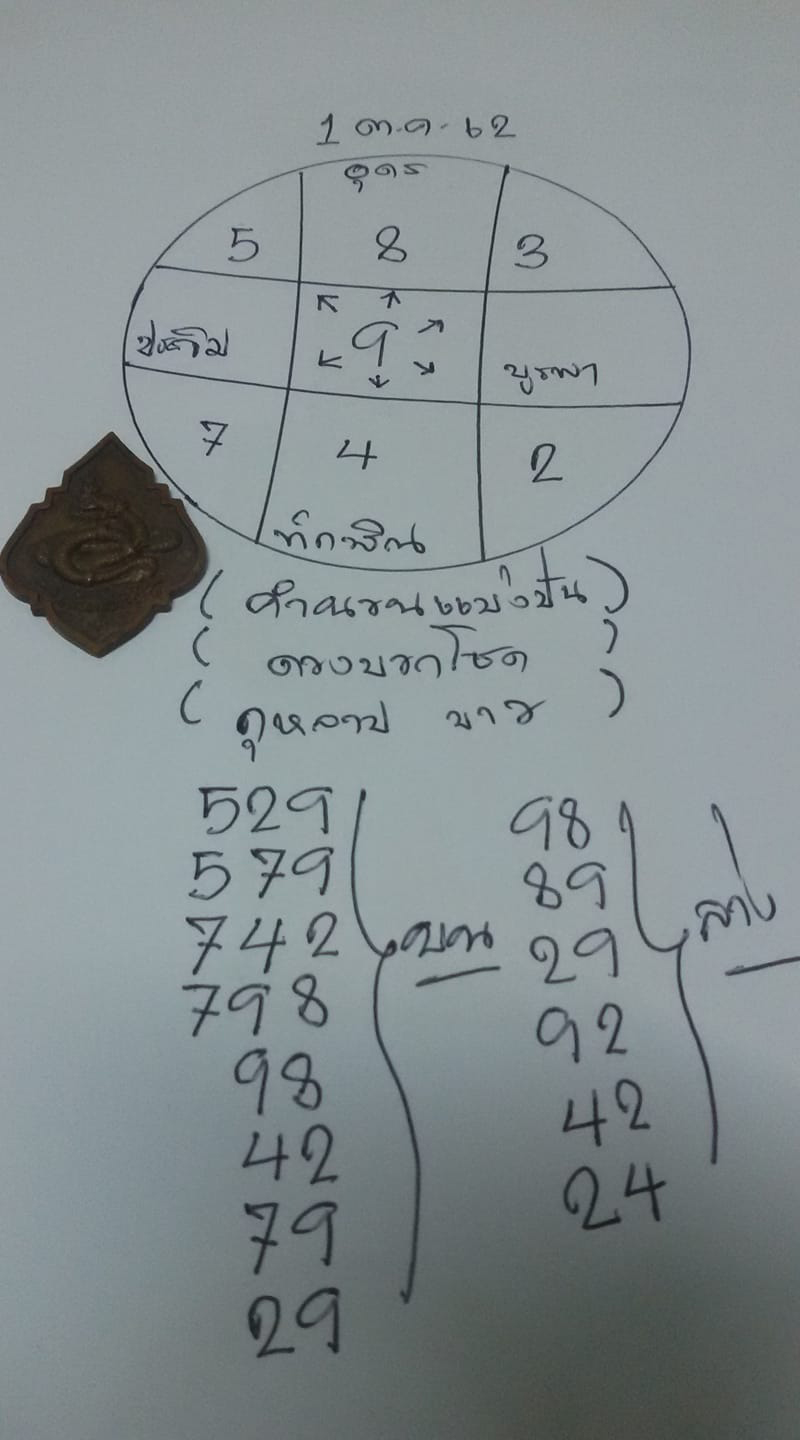 1 ต.ค. ๖2
อุดร
5 8 3
ประจิม 9 บูรพา
7 4 2
ทักษิณ
(คำนวนแบ่งปัน)
(ดวงบวกโชค)
(กุหลาบ ขาว)
529 98
579 89
742 บน 29 ล่าง
798 92
98 42
42 24
79
29